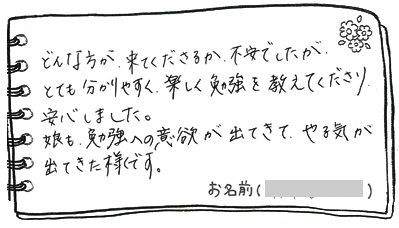 どんな方が、来てくださるか、不安でしたが、
とても分かりやすく、楽しく勉強を教えてくださり、
安心しました。
娘も、勉強への意欲が出てきて、やる気が
出てきた様です。
お名前( )